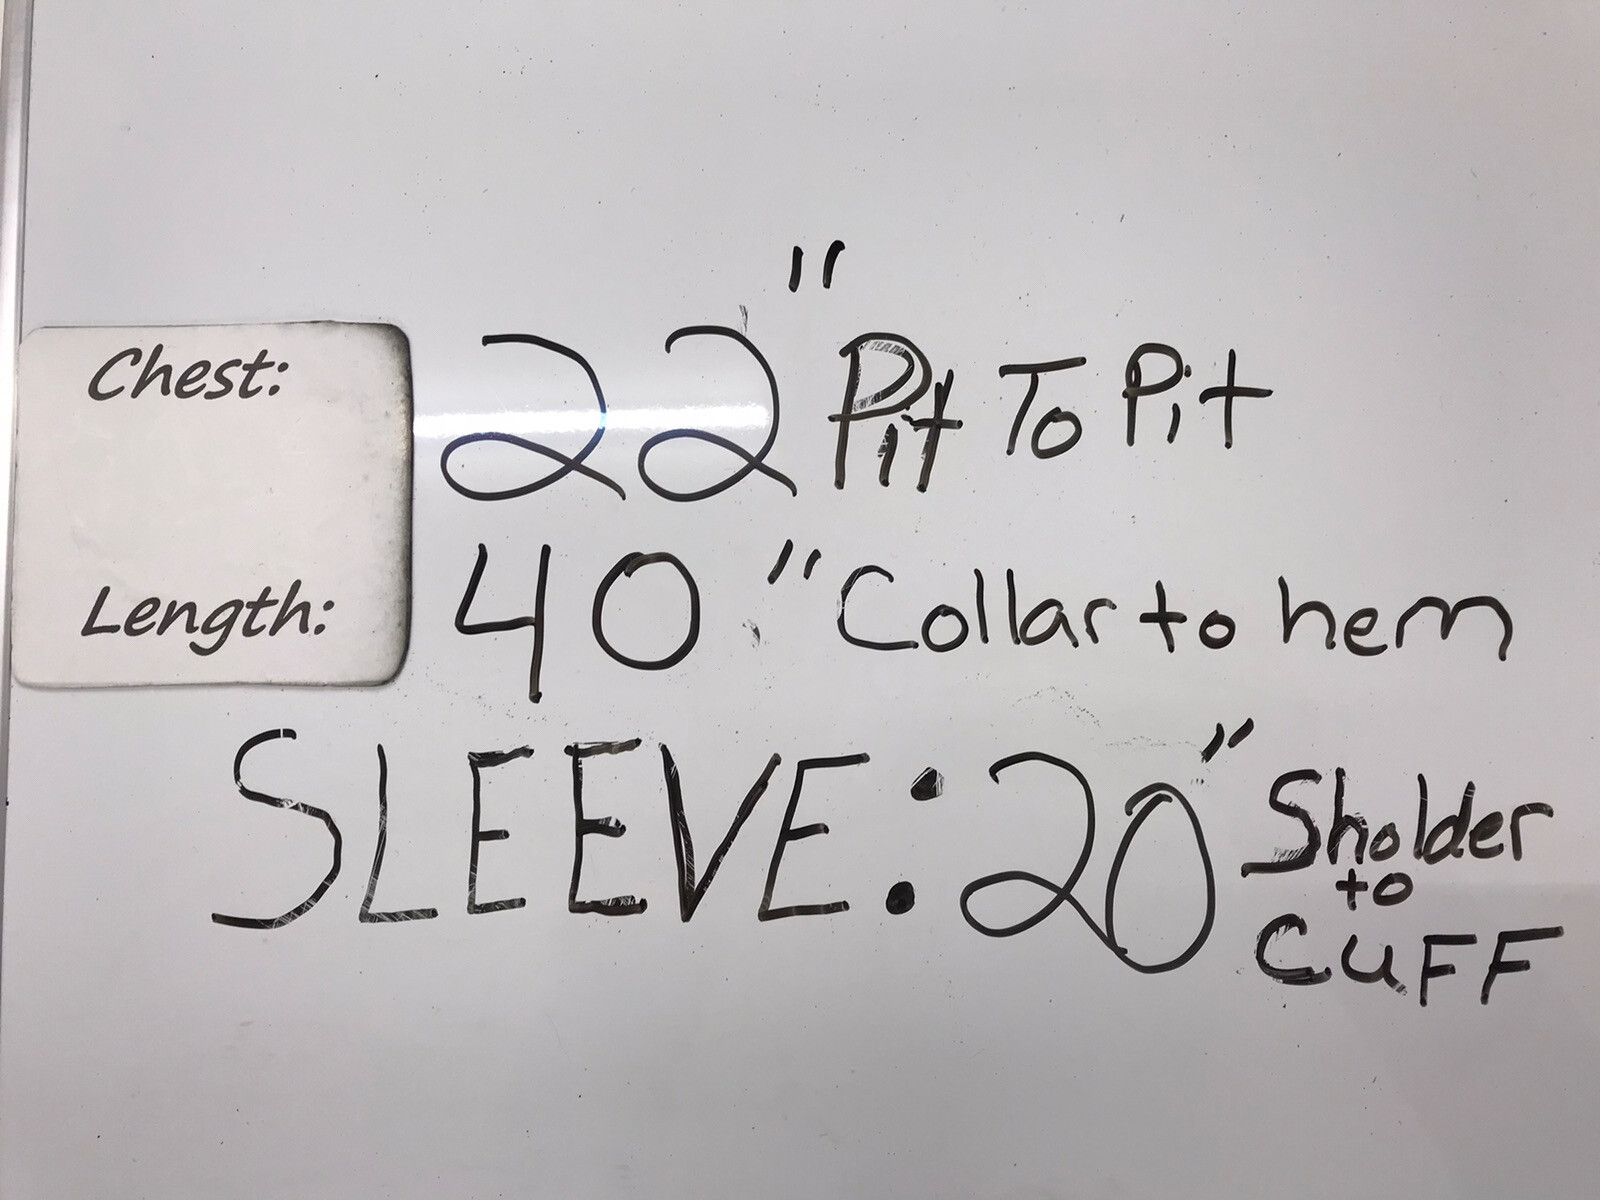 Chest: 22" Pit To Pit
Length: 40" Collar to hem
SLEEVE: 20" Sholder
to
CUFF